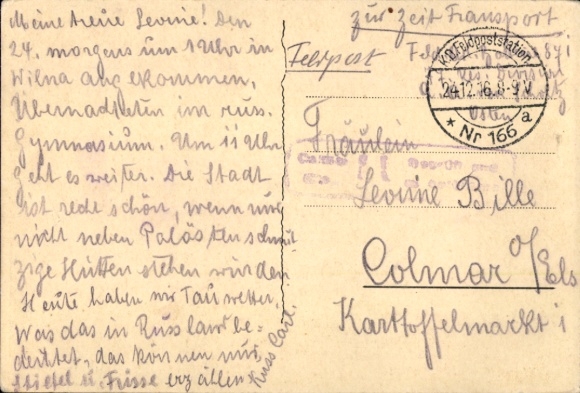 Meine treue Levine! Den
24. morgens um 1 Uhr in
Wilna angekommen.
Übernachteten im russ.
Gymnasium. Um 11 Uhr
geht es weiter. Die Stadt
ist rede schön, wenn nur
nicht neben Palästen schmut
zige Hütten stehen würden
Heute haben wir Tauwetter.
Was das in Russland be-
deutet, das können nur
Stiefel u. Füsse erzählen
Kuss Carl.
zur Zeit Transport
Feldpost
K.D. Feldpoststation
24.12.16. 8-9 V.
* Nr 166 a
der Division
Osten
Fräulein
Levine Bille
Colmar o/Els
Karthoffelmarkt 1